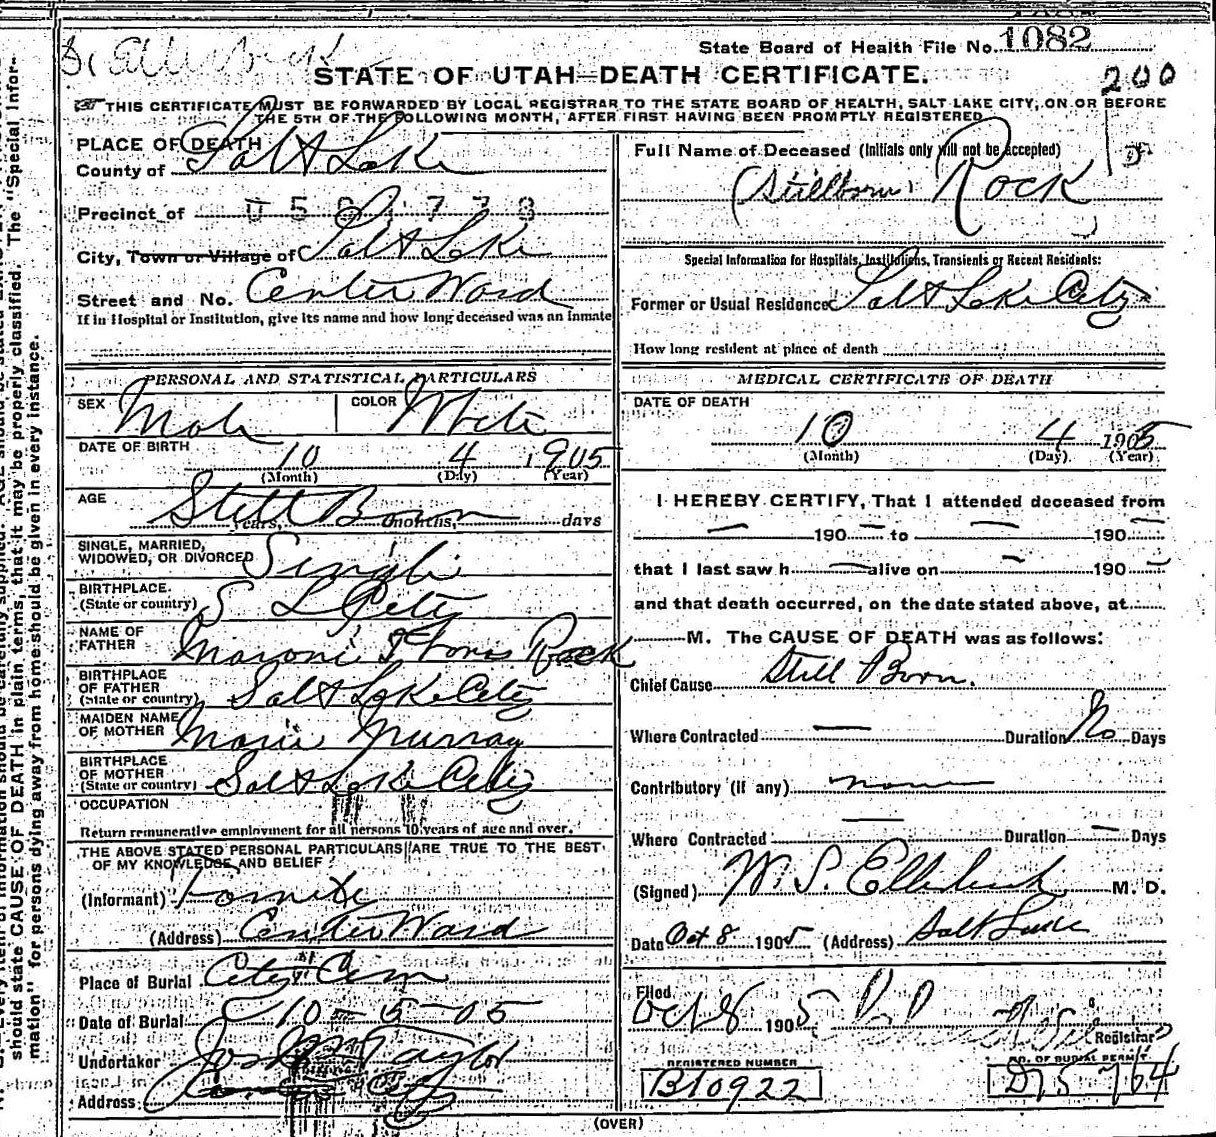 State Board of Health File No. 1082
STATE OF UTAH—DEATH CERTIFICATE.
200
THIS CERTIFICATE MUST BE FORWARDED BY LOCAL REGISTRAR TO THE STATE BOARD OF HEALTH, SALT LAKE CITY, ON OR BEFORE
THE 5TH OF THE FOLLOWING MONTH, AFTER FIRST HAVING BEEN PROMPTLY REGISTERED
PLACE OF DEATH
County of Salt Lake
Precinct of
City, Town or Village of Salt Lake
Street and No. Center Ward
If in Hospital or Institution, give its name and how long deceased was an inmate
Full Name of Deceased (Initials only will not be accepted)
(Stillborn) Rock
Special Information for Hospitals, Institutions, Transients or Recent Residents:
Former or Usual Residence Salt Lake City
How long resident at place of death
PERSONAL AND STATISTICAL PARTICULARS
SEX Male COLOR White
DATE OF BIRTH
10 4 1905
(Month) (Day) (Year)
AGE Still Born
years, months, days
SINGLE, MARRIED,
WIDOWED, OR DIVORCED Single
BIRTHPLACE
(State or country) S L City
NAME OF
FATHER Moroni Rock
BIRTHPLACE
OF FATHER
(State or country) Salt Lake City
MAIDEN NAME
OF MOTHER Marie Murray
BIRTHPLACE
OF MOTHER
(State or country) Salt Lake City
OCCUPATION
Return remunerative employment for all persons 10 years of age and over.
THE ABOVE STATED PERSONAL PARTICULARS ARE TRUE TO THE BEST
OF MY KNOWLEDGE AND BELIEF
(Informant)
(Address) Center Ward
Place of Burial City Cem
Date of Burial 10-5-05
Undertaker Jos Taylor
Address
MEDICAL CERTIFICATE OF DEATH
DATE OF DEATH
10 4 1905
(Month) (Day) (Year)
I HEREBY CERTIFY, That I attended deceased from
— 190 — to — 190 —
that I last saw h — alive on — 190 —
and that death occurred, on the date stated above, at
M. The CAUSE OF DEATH was as follows:
Chief Cause Still Born.
Where Contracted — Duration No Days
Contributory (if any) none
Where Contracted — Duration — Days
(Signed) W. S. Ellerbeck M. D.
Date Oct 8 1905 (Address) Salt Lake
Filed
Oct 8 1905
Registrar
REGISTERED NUMBER
B10922
NO. OF BURIAL PERMIT
D75764
(OVER)
should state CAUSE OF DEATH in plain terms, that it may be properly classified. The "Special Infor-
mation" for persons dying away from home should be given in every instance.